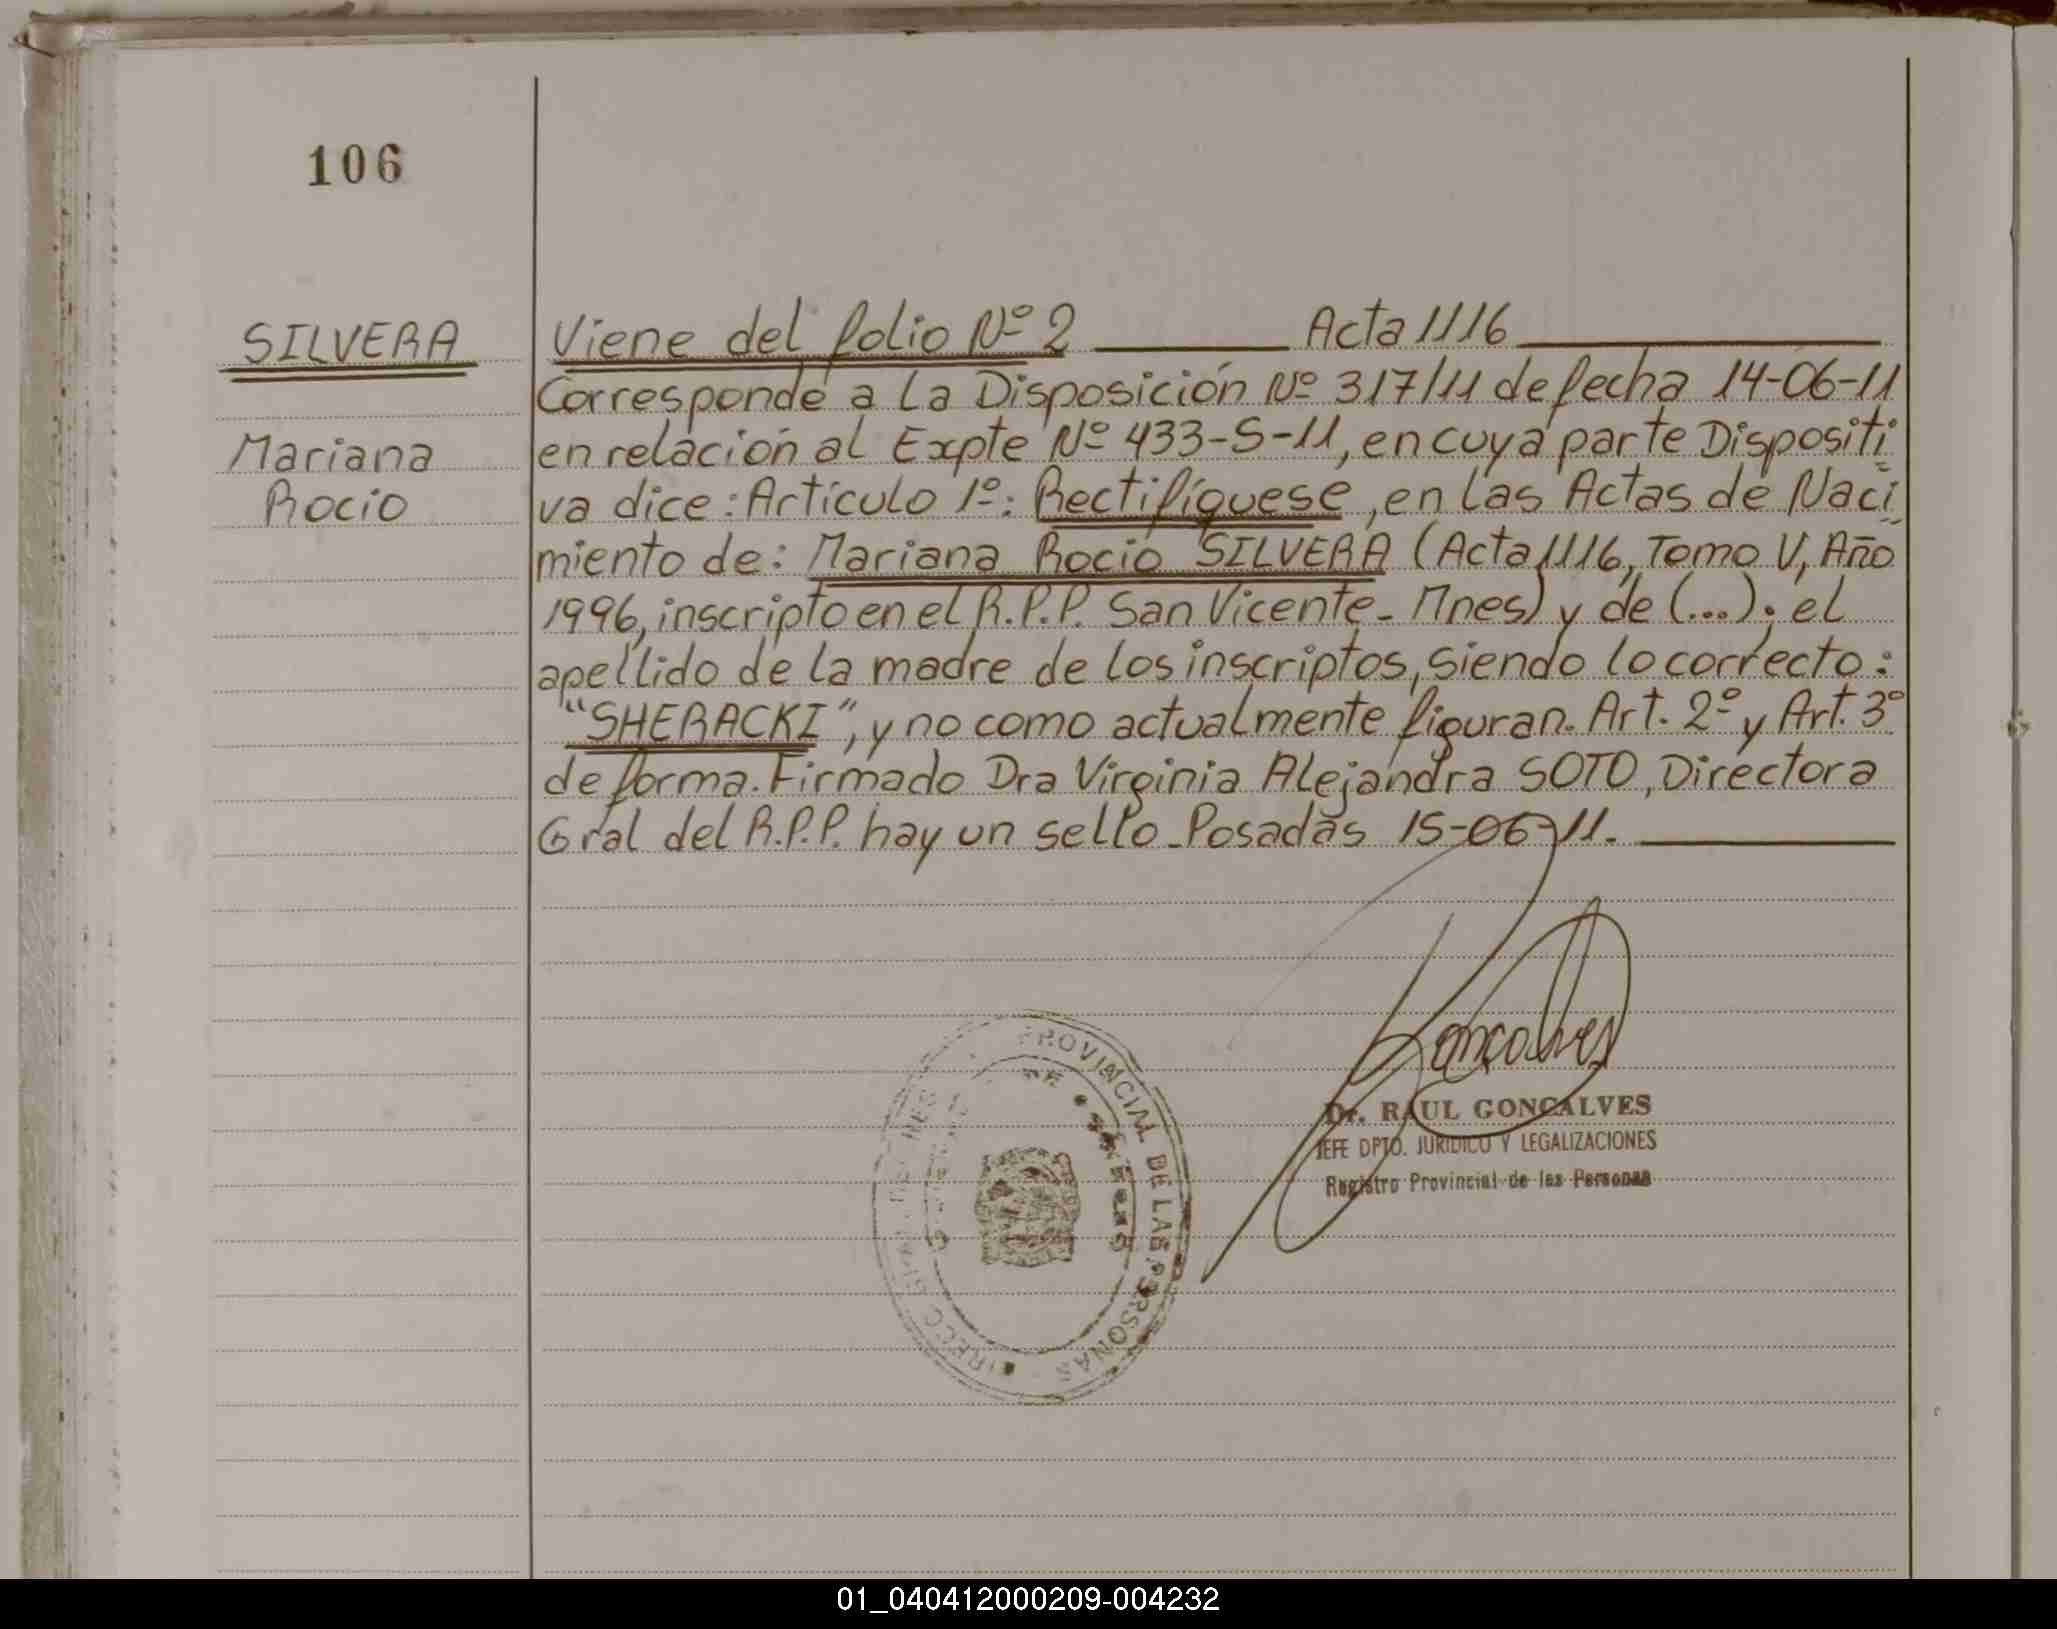 106
SILVERA
Mariana
Rocio
Viene del folio Nº 2 ______ Acta 1116 ______
Corresponde a La Disposición Nº 317/11 de fecha 14-06-11
en relación al Expte Nº 433-S-11, en cuya parte Dispositi
va dice: Artículo 1º: Rectifíquese, en las Actas de Naci
miento de: Mariana Rocio SILVERA (Acta 1116, Tomo V, Año
1996, inscripto en el R.P.P. San Vicente - Mnes) y de (...); el
apellido de la madre de los inscriptos, siendo lo correcto:
"SHERACKI", y no como actualmente figuran. Art. 2º y Art. 3º
de forma. Firmado Dra Virginia Alejandra SOTO, Directora
Gral del R.P.P. hay un sello - Posadas 15-06-11. ______
Goncalves
Dr. RAUL GONCALVES
JEFE DPTO. JURIDICO Y LEGALIZACIONES
Registro Provincial de las Personas
PROVINCIAL DE LAS PERSONAS
01_040412000209-004232